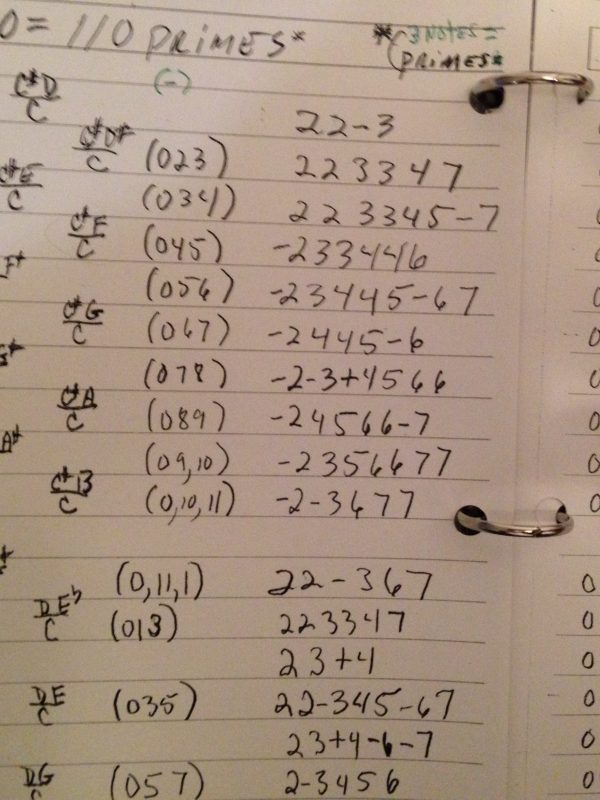 0 = 110 PRIMES* *(3 NOTES = PRIMES*
(-)
C#D/C 22-3
C#D#/C (023) 223347
C#E/C (034) 223345-7
C#F/C (045) -233446
F# (056) -23445-67
C#G/C (067) -2445-6
(078) -2-3+4566
C#A/C (089) -24566-7
A# (09,10) -2356677
C#B/C (0,10,11) -2-3677
(0,11,1) 22-367
DEb/C (013) 223347
23+4
DE/C (035) 22-345-67
23+4-6-7
DG/C (057) 2-3456
0
0
0
0
0
0